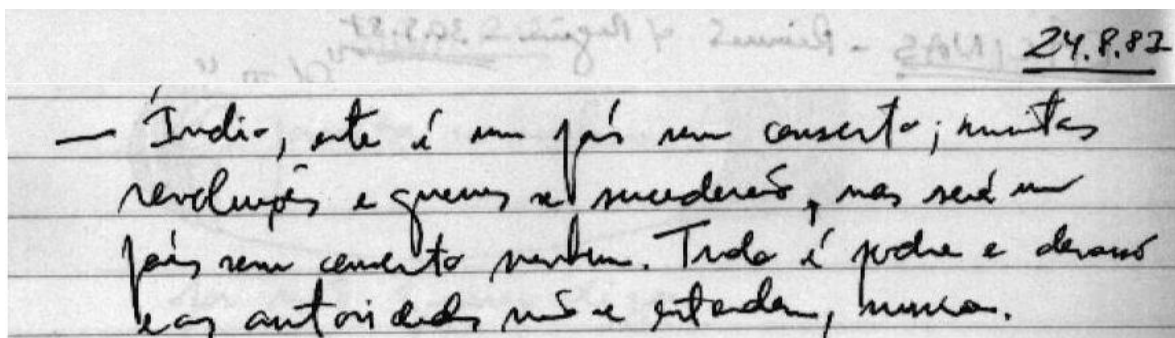 24.8.82
— Índio, este é um país sem conserto; muitas
revoluções e guerras se sucederão, mas será um
país sem conserto nenhum. Tudo é podre e
e as autoridades não se entendem, nunca.